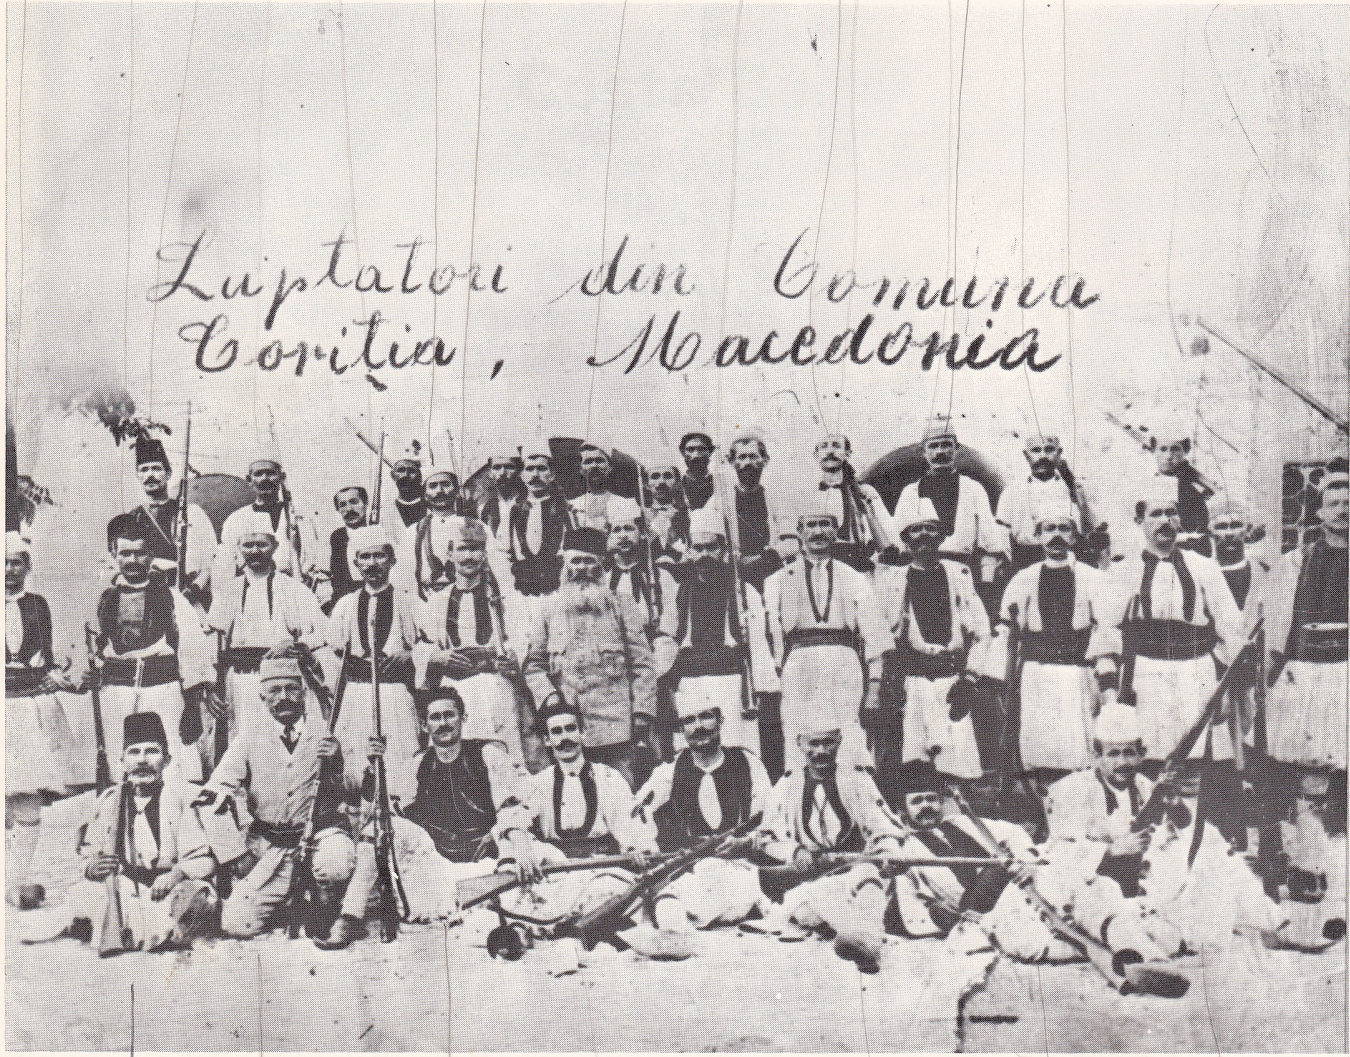 Luptatori din Comuna
Coriția, Macedonia